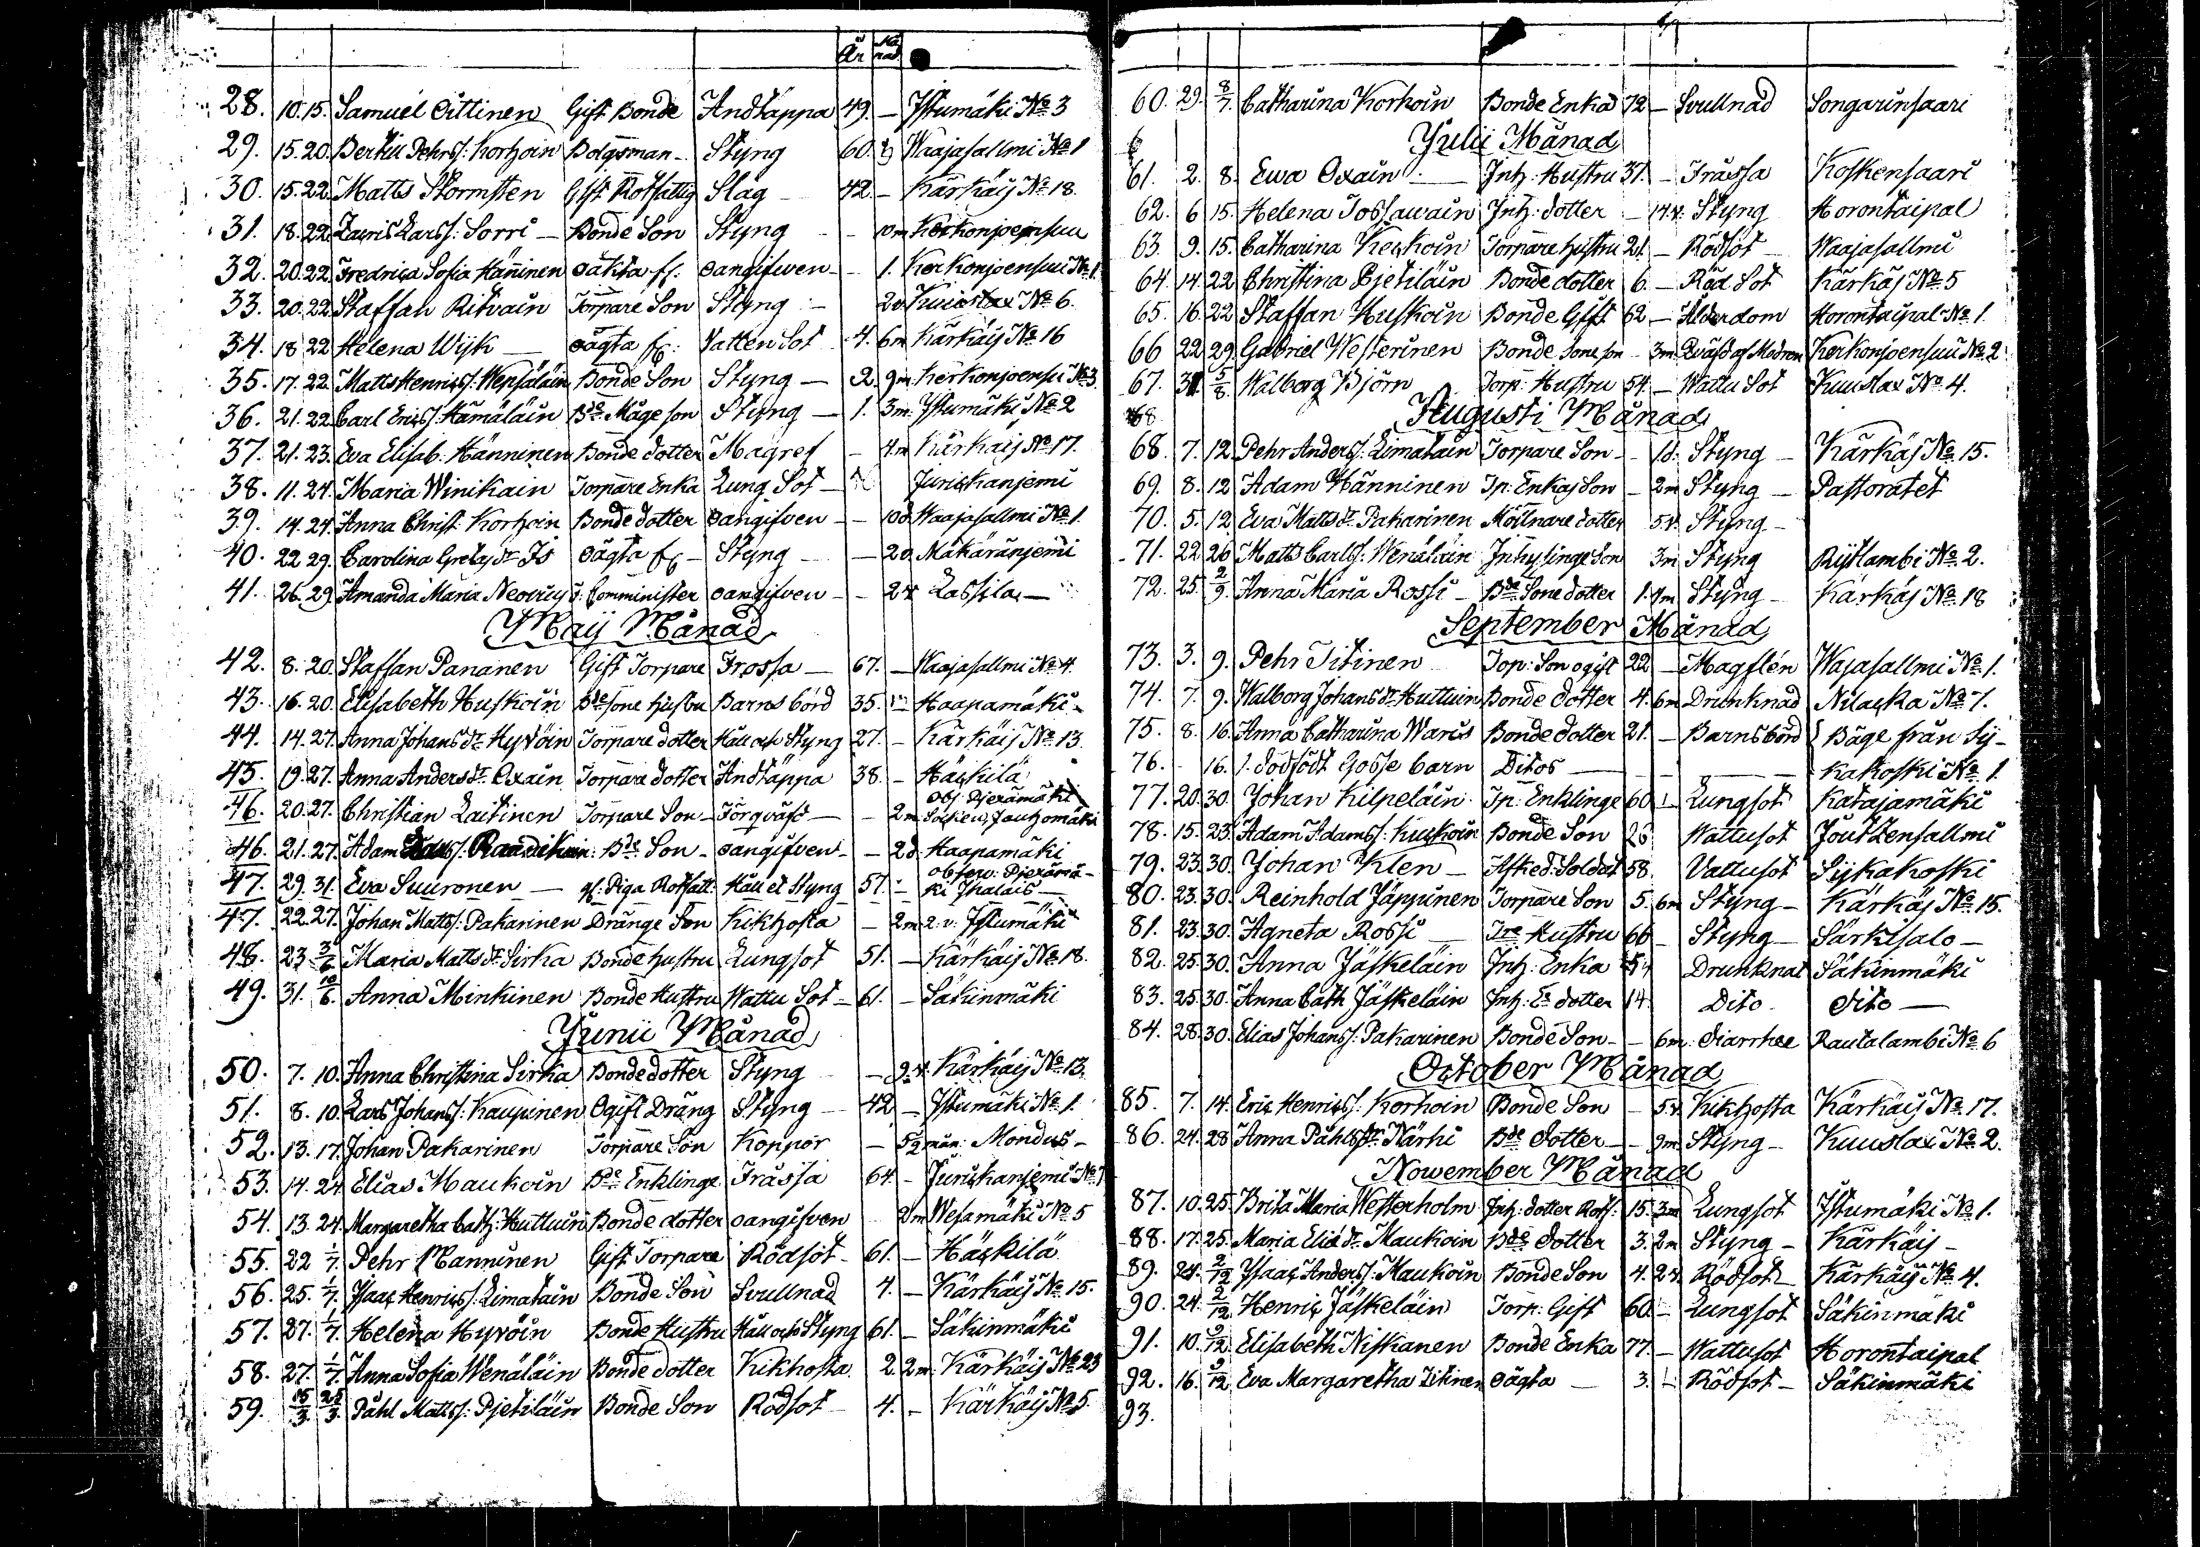 År Må nad
28. 10. 15. Samuel Oittinen Gift Bonde Andtäppa 49. - Istumäki No 3
29. 15. 20. Bertil Pehrs: Korhoin Bolgsman - Styng 60. Waajasallmi No 1
30. 15. 22. Matts Stormsten Gift Rotfattig Slag 42. - Kärkäis No 18.
31. 18. 22. Lars: Sorri - Bonde Son Styng - Kerkonjoensuu
32. 20. 22. Fredrica Sofia Hänninen oäkta f: oangifven - 1. Kerkonjoensuu No 1
33. 20. 22. Staffan Ritvain Torpare Son Styng - Kuuslax No 6.
34. 18 22 Helena Wijk oägta f: Vatten Sot 4. 6m Kärkäis No 16
35. 17. 22. Matts Henrics: Wenäläin Bonde Son Styng - 2. 9m Kerkonjoensu No 3.
36. 21. 22. Carl Erics: Hämäläin Bde Måge son Styng - 1. 3m. Istumäki No 2
37. 21. 23. Eva Elisab. Hänninen Bonde dotter Magref - 4m Kärkäis No 17.
38. 11. 24. Maria Winikain Torpare Enka Lung Sot - Juriskanjemi
39. 14. 24. Anna Christ. Korhoin Bonde dotter oangifven - 10d. Waajasallmi No 1.
40. 22 29. Carolina Is oägta f: - Styng - Makaränjemi
41. 26. 29. Amanda Maria Neovius Comminister oangifven - Lassila -
Maij Månad
42. 8. 20. Staffan Pananen Gift Torpare Frossa - 67. - Waajasallmi No 4.
43. 16. 20. Elisabeth Huskoin Bde sone hustru Barns börd 35. Haapamäki
44. 14. 27. Anna Johans dr Hyvöin Torpare dotter Håll och Styng 27. - Kärkäis No 13.
45. 19. 27. Anna Anders dr Oxain Torpare dotter Andtäppa 38. - Häckilä
46. 20. 27. Christian Laitinen Torpare Son - Förqväfd - - 2m. obs. Pjexämäki Socken, Jauhomäki
46. 21. 27. Adam Bde Son - oangifven - - 2d. Haapamäki
47. 29. 31. Eva Suuronen - gl: Piga Rotfatt: Håll et Styng 57. - observ: Pjexämäki
47. 22. 27. Johan Matts: Pakarinen Dränge Son Kikhosta - 2m. 2. v. Istumäki
48. 23 3/6 Maria Matts dr Sirka Bonde hustru Lungsot 51. - Kärkäis No 18.
49. 31. 10/6. Anna Minkinen Bonde Hustru Wattu Sot - 61. - Säkinmäki
Junii Månad
50. 7. 10. Anna Christina Sirka Bonde dotter Styng - Kärkäis No 13.
51. 8. 10. Lars Johans: Kaupinen Ogift Dräng Styng - 42 - Istumäki No 1.
52. 13. 17. Johan Pakarinen Torpare Son Koppor - 5 1/2 mån: Mondus -
53. 14. 24. Elias Maukoin Bde Enklinge Frässa 64. - Juriskanjemi
54. 13. 24. Margaretha Cath: Huttuin Bonde dotter oangifven 2m Wesamäki No 5
55. 22 1/7. Pehr Manninen Gift Torpare Rödsot - 61. - Häckilä
56. 25. 1/7. Isaac Henrics: Limatain Bonde Son Svullnad 4. - Kärkäis No 15.
57. 27. 1/7. Helena Hyvöin Bonde Hustru Håll och Styng 61. - Säkinmäki
58. 27. 1/7. Anna Sofia Wenäläin Bonde dotter Kikhosta 2. 2m. Kärkäis No 23
59. 15/3. 25/3. Påhl Matts: Pjetiläin Bonde Son Rödsot - 4. - Kärkäis No 5.
60. 29. 8/7. Catharina Korhoin Bonde Enka 72 - Svullnad Songarinsaari
Julii Månad
61. 2. 8. Ewa Oxain - Inh: Hustru 37. - Frässa Koskensaari
62. 6 15. Helena Inh: dotter - 14. v. Styng Horontaipal
63. 9. 15. Catharina Torpare hustru 21. - Rödsot - Waajasallmi
64. 14. 22 Christina Pjetiläin Bonde dotter 6. - Röd Sot Kärkäs No 5
65. 16. 22 Staffan Huskoin Bonde Gift 62 - Ålderdom Horontaipal No 1.
66 22 29. Gabriel Westerinen Bonde Sone son - 3m. Qväfd af Modren Kerkonjoensuu No 2
67. 31. 5/8. Walborg Björn Torp: Hustru 54. - Wattu Sot Kuuslax No 4.
Augusti Månad
68. 7. 12. Pehr Anders: Limatain Torpare Son - - 1d. Styng - Kärkäs No 15.
69. 8. 12 Adam Hänninen Tp: Enkas Son - 2m Styng - Pastoratet
70. 5. 12 Eva Matts dr Pakarinen Möllnare dotter 5. v. Styng -
71. 22 26 Matts Carls: Wenäläin Inhyslinge Son 3m Styng Rijtlambi No 2.
72. 25. 2/9. Anna Maria Rossi - Bde Sone dotter 1. 4m Styng - Kärkäs No 18
September Månad
73. 3. 9. Pehr Titinen Torp: Son ogift 22 - Waajasallmi No 1.
74. 7. 9. Walborg Johans dr Huttuin Bonde dotter 4. 6m Drunknad Nilacka No 7.
75. 8. 16. Anna Catharina Waris Bonde dotter 21. - Barnsbörd } Båge från Sij-
76. - 16. 1. dödfödt Gosse barn Ditos - kakoski No 1.
77. 20. 30. Johan Kilpeläin Tp: Enklinge 60. - Lungsot Katajamäki
78. 15. 23. Adam Adams: Bonde Son 26 Wattusot
79. 23. 30. Johan Klen - Afsked: Soldat 58. Vattusot Sijkakoski
80. 23. 30. Reinhold Jäppinen Torpare Son 5. 6m Styng - Kärkäs No 15.
81. 23. 30. Agneta Rossi Tre Hustru 66 - Styng - Särkisalo -
82. 25. 30. Anna Jäskeläin Inh: Enka Drunknat Säkinmäki
83. 25. 30. Anna Cath Jäskeläin Inh: Es dotter 14. Dito dito -
84. 28. 30. Elias Johans: Pakarinen Bonde Son - - 6m. diarrhee Rautalambi No 6
October Månad
85. 7. 14. Eric Henrics: Korhoin Bonde Son - 5. v. Kikhosta Kärkäis No 17.
86. 24. 28 Anna Påhls dr Närhi Bde dotter - - 9m Styng - Kuuslax No 2.
Nowember Månad
87. 10. 25. Brita Maria Westerholm Inh: dotter Rotf: 15. 3m Lungsot Istumäki No 1.
88. 17. 25. Maria Elis dr Maukoin Bde dotter 3. 2m Styng - Kärkäis -
89. 24. 2/12 Isaac Anders: Maukoin Bonde Son 4. 2. v. Rödsot - Kärkäis No 4.
90. 24. 2/12 Henric Jäskeläin Torp: Gift 60. - Lungsot Säkinmäki
91. 10. 9/12 Elisabeth Niskanen Bonde Enka 77. - Wattusot Horontaipal
92. 16. 9/12. Eva Margaretha Titinen oägta - 3. - Rödsot - Säkinmäki
93.